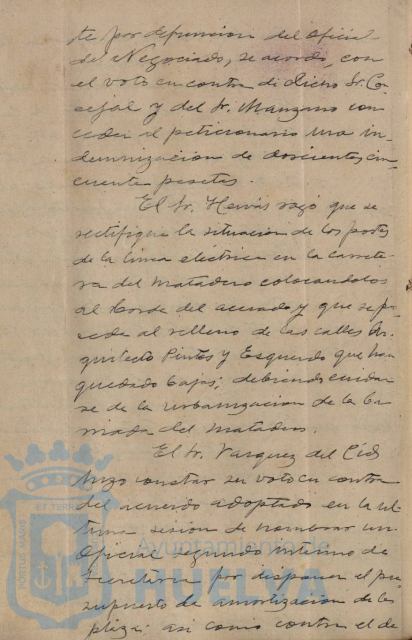 te por defuncion del Oficial
de Negociado, se acordó, con
el voto en contra di dicho Sr. Con
cejal y del Sr. Manzano con
ceder al peticionario una in
demnización de doscientas cin
cuenta pesetas.
El Sr. Hervás rogó que se
rectifique la situacion de los postes
de la linea eléctrica en la carrete
ra del Matadero colocandolos
al borde del acerado y que se pro
ceda al relleno de las calles Ar
quitecto Pintos y Esquerdo que han
quedado bajas; debiendo cuidar
se de la urbanizacion de la ba
rriada del matadero.
El Sr. Vazquez del Cid
hizo constar su voto en contra
del acuerdo adoptado en la ul
tima sesion de nombrar un
Oficial segundo interino de
Secretaria por disponer el pre
supuesto de amortizacion de la
plaza: asi como contra el de
PORTUS MARIS ET TERRAE
Ayuntamiento de
HUELVA